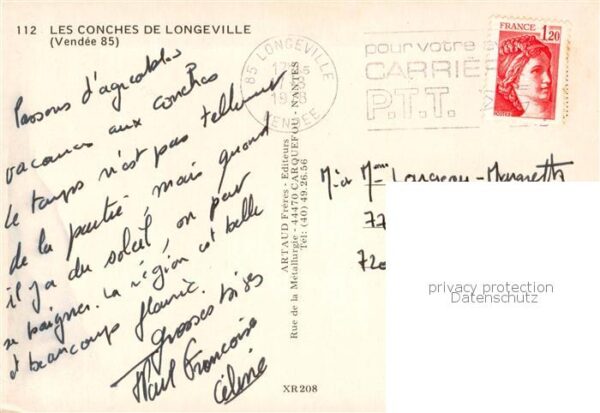 112 LES CONCHES DE LONGEVILLE
(Vendée 85)
Passons d'agréables
vacances aux conches
Le temps n'est pas tellement
de la partie, mais quand
il y a du soleil, on peut
se baigner. La région est belle
et beaucoup fleurie.
Grosses bises
Françoise
Céline
ARTAUD Frères - Editeurs
Rue de la Métallurgie - 44470 CARQUEFOU - NANTES
Tél: (40) 49.26.56
XR 208
85 LONGEVILLE
VENDEE
pour votre
CARRIÈR
P.T.T.
FRANCE
1,20
M. et Mme
72
720
privacy protection
Datenschutz